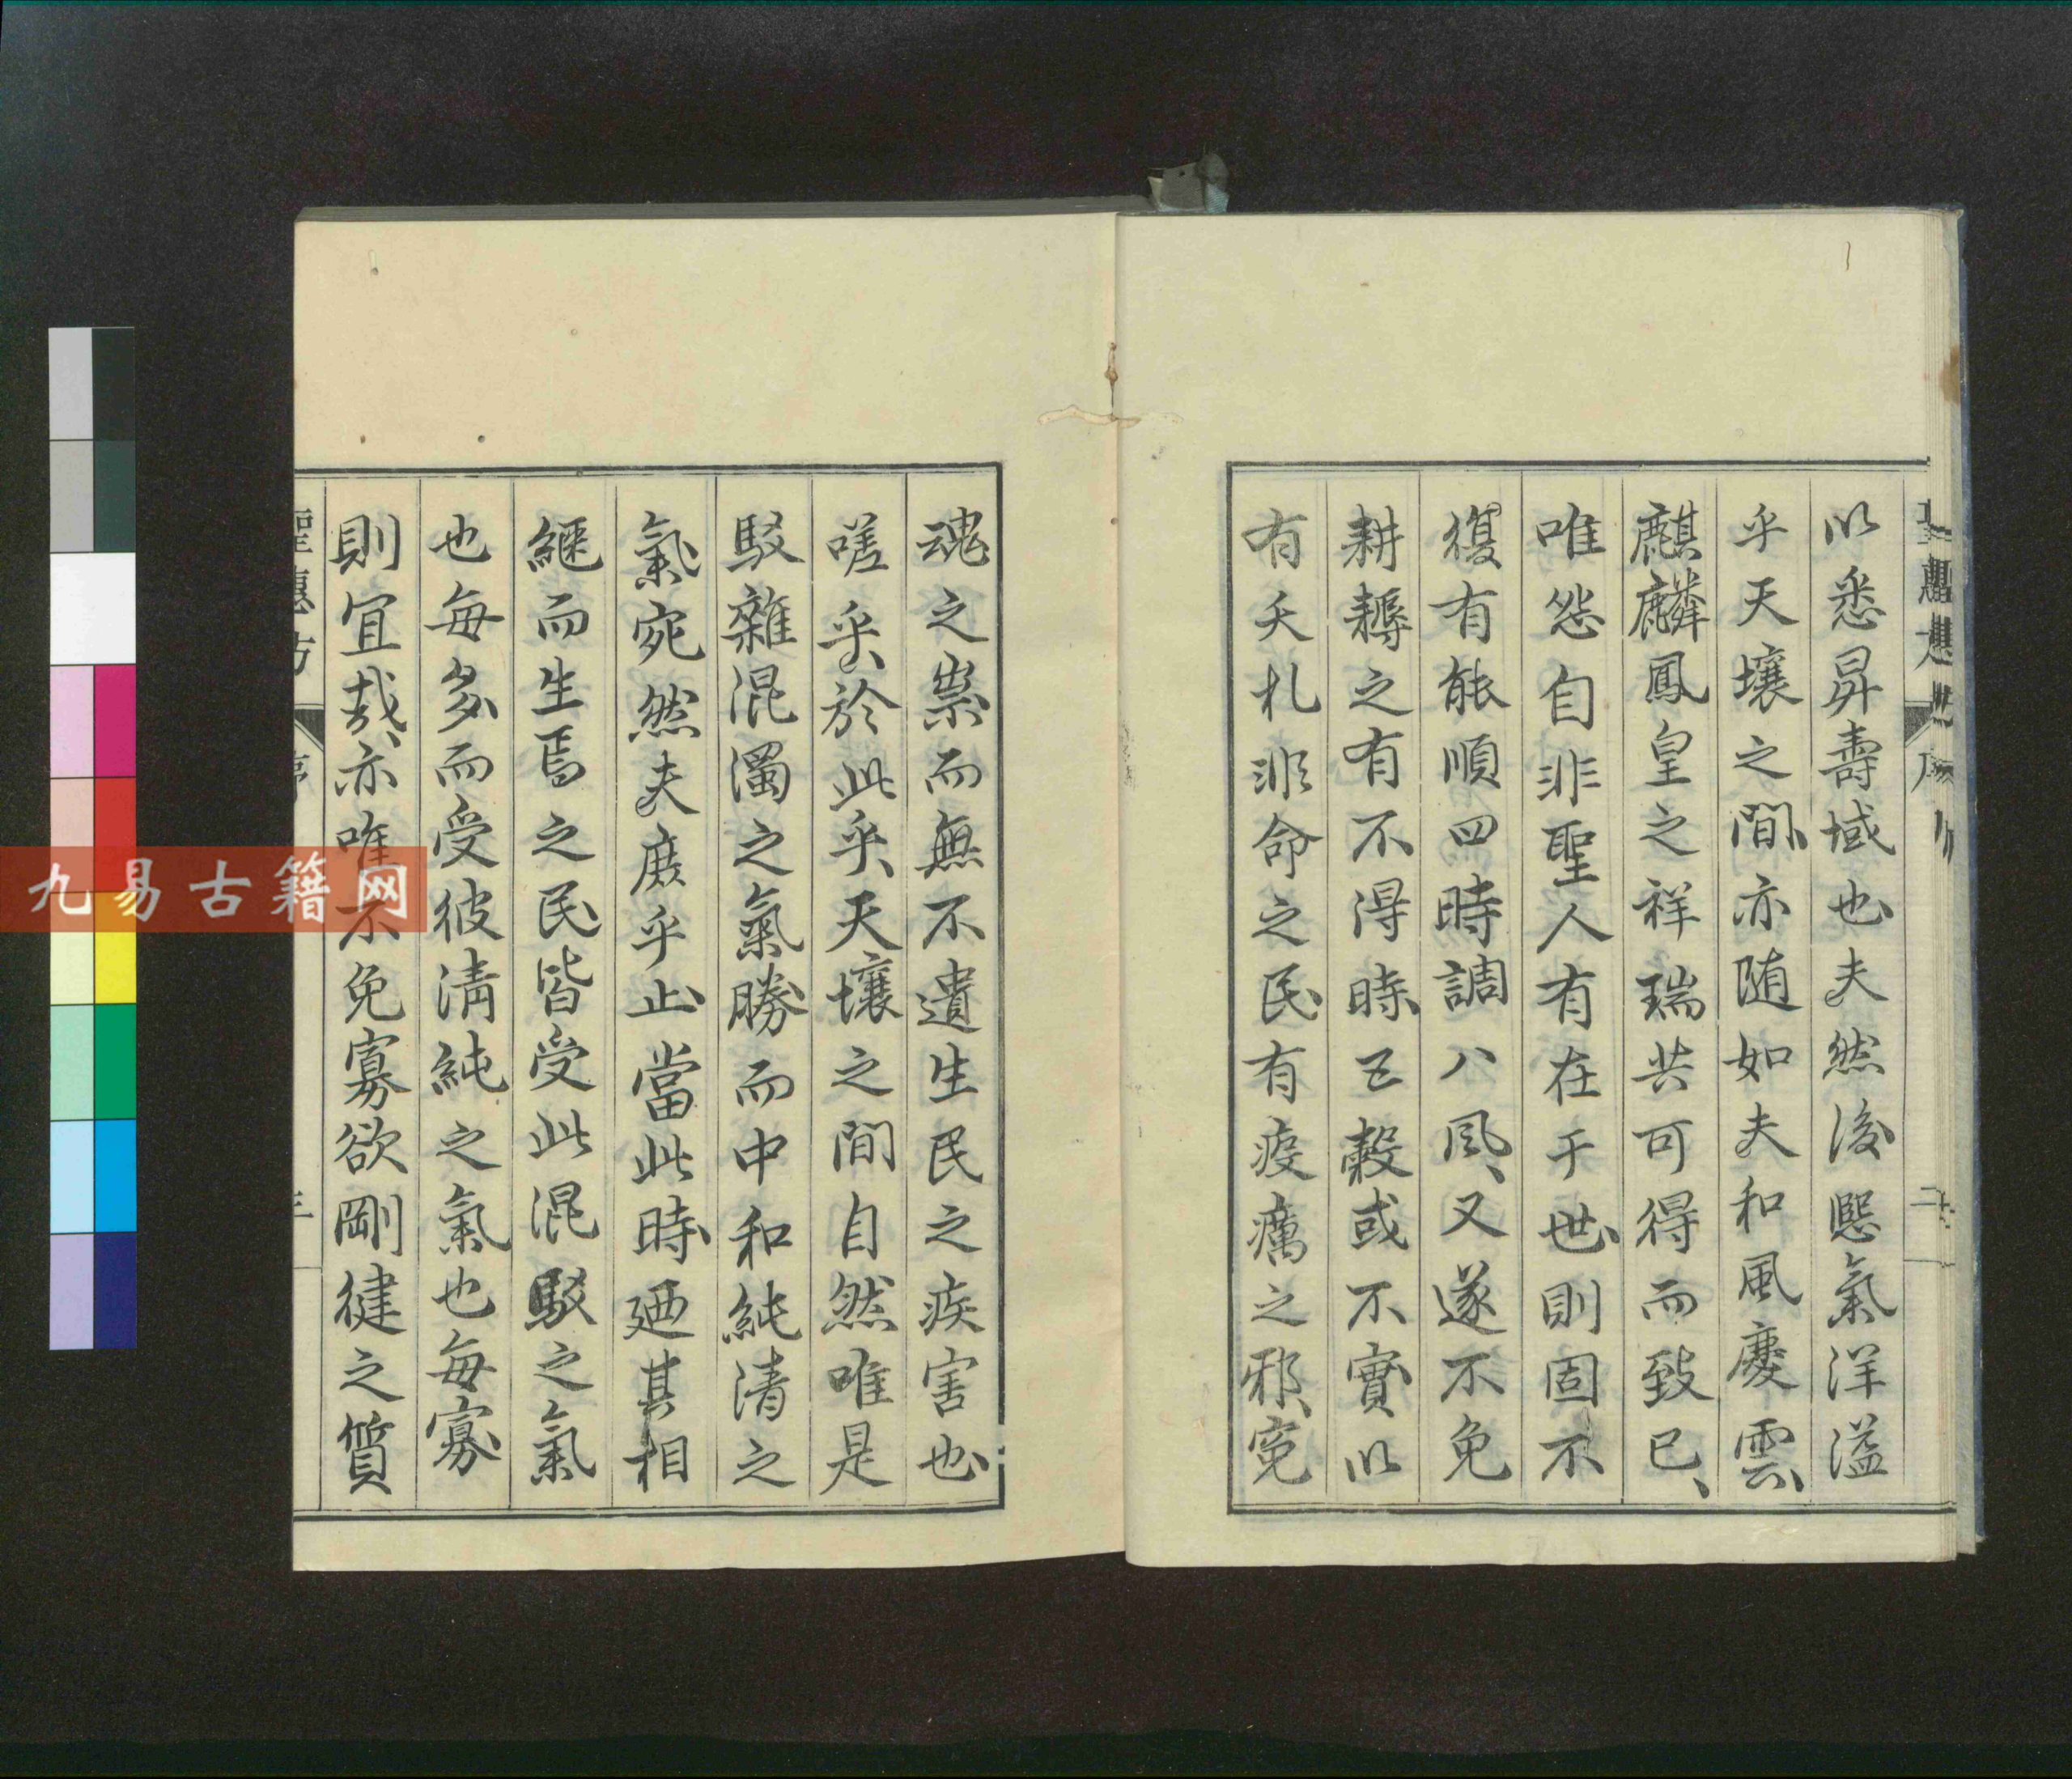 以悉昇壽域也夫然後熈氣洋溢
乎天壤之間亦随如夫和風慶雲
麒麟鳳皇之祥瑞共可得而致已
唯怨自非聖人有在于世則固不
復有能順四時調八風又遂不免
耕耨之有不得時五穀或不實以
有夭札非命之民有疫癘之邪冤
魂之祟而無不遺生民之疾害也
嗟乎於此乎天壤之間自然唯是
駁雜混濁之氣勝而中和純清之
氣宛然夫庶乎止當此時廼其相
繼而生焉之民皆受此混駁之氣
也每多而受彼淸純之氣也每寡
則宜哉亦唯不免寡欲剛健之質
聖惠方 序
九易古籍网